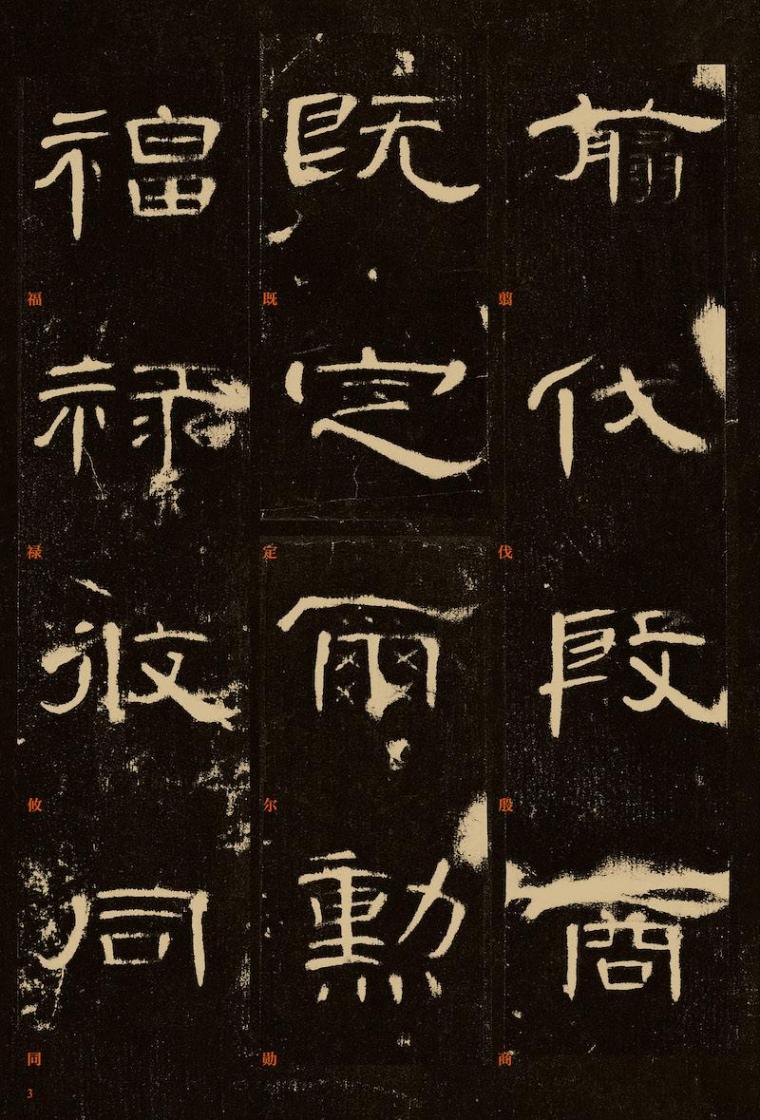 翦伐殷商
翦伐殷商
既定爾勳
既定尔勋
福祿攸同
福禄攸同
3